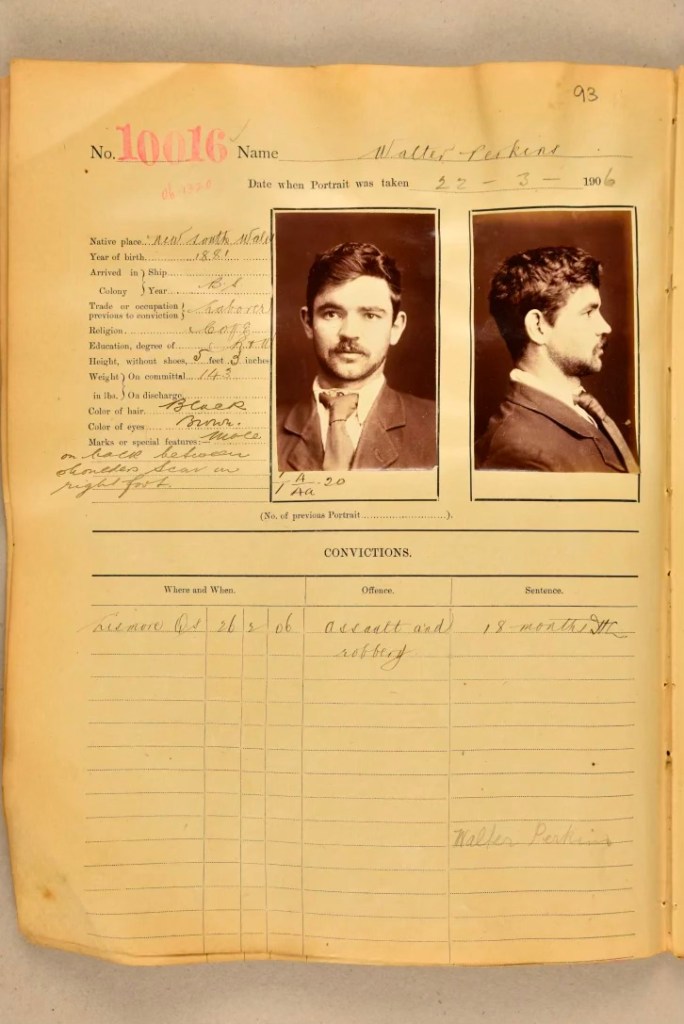 93
No. 10016 Name Walter Perkins
Date when Portrait was taken 22 - 3 - 1906
Native place New South Wales
Year of birth 1881
Arrived in } Ship
Colony } Year BS
Trade or occupation previous to conviction } Laborer
Religion C of E
Education, degree of R & W
Height, without shoes, 5 feet 3 inches
Weight } On committal 143
in lbs. } On discharge
Color of hair Black
Color of eyes Brown.
Marks or special features:— Mole
on back between
shoulders Scar on
right foot.
1 A 20
1 Aa
(No. of previous Portrait ).
CONVICTIONS.
Where and When. Offence. Sentence.
Lismore QS 26 2 06 Assault and 18 months HL
robbery
Walter Perkins